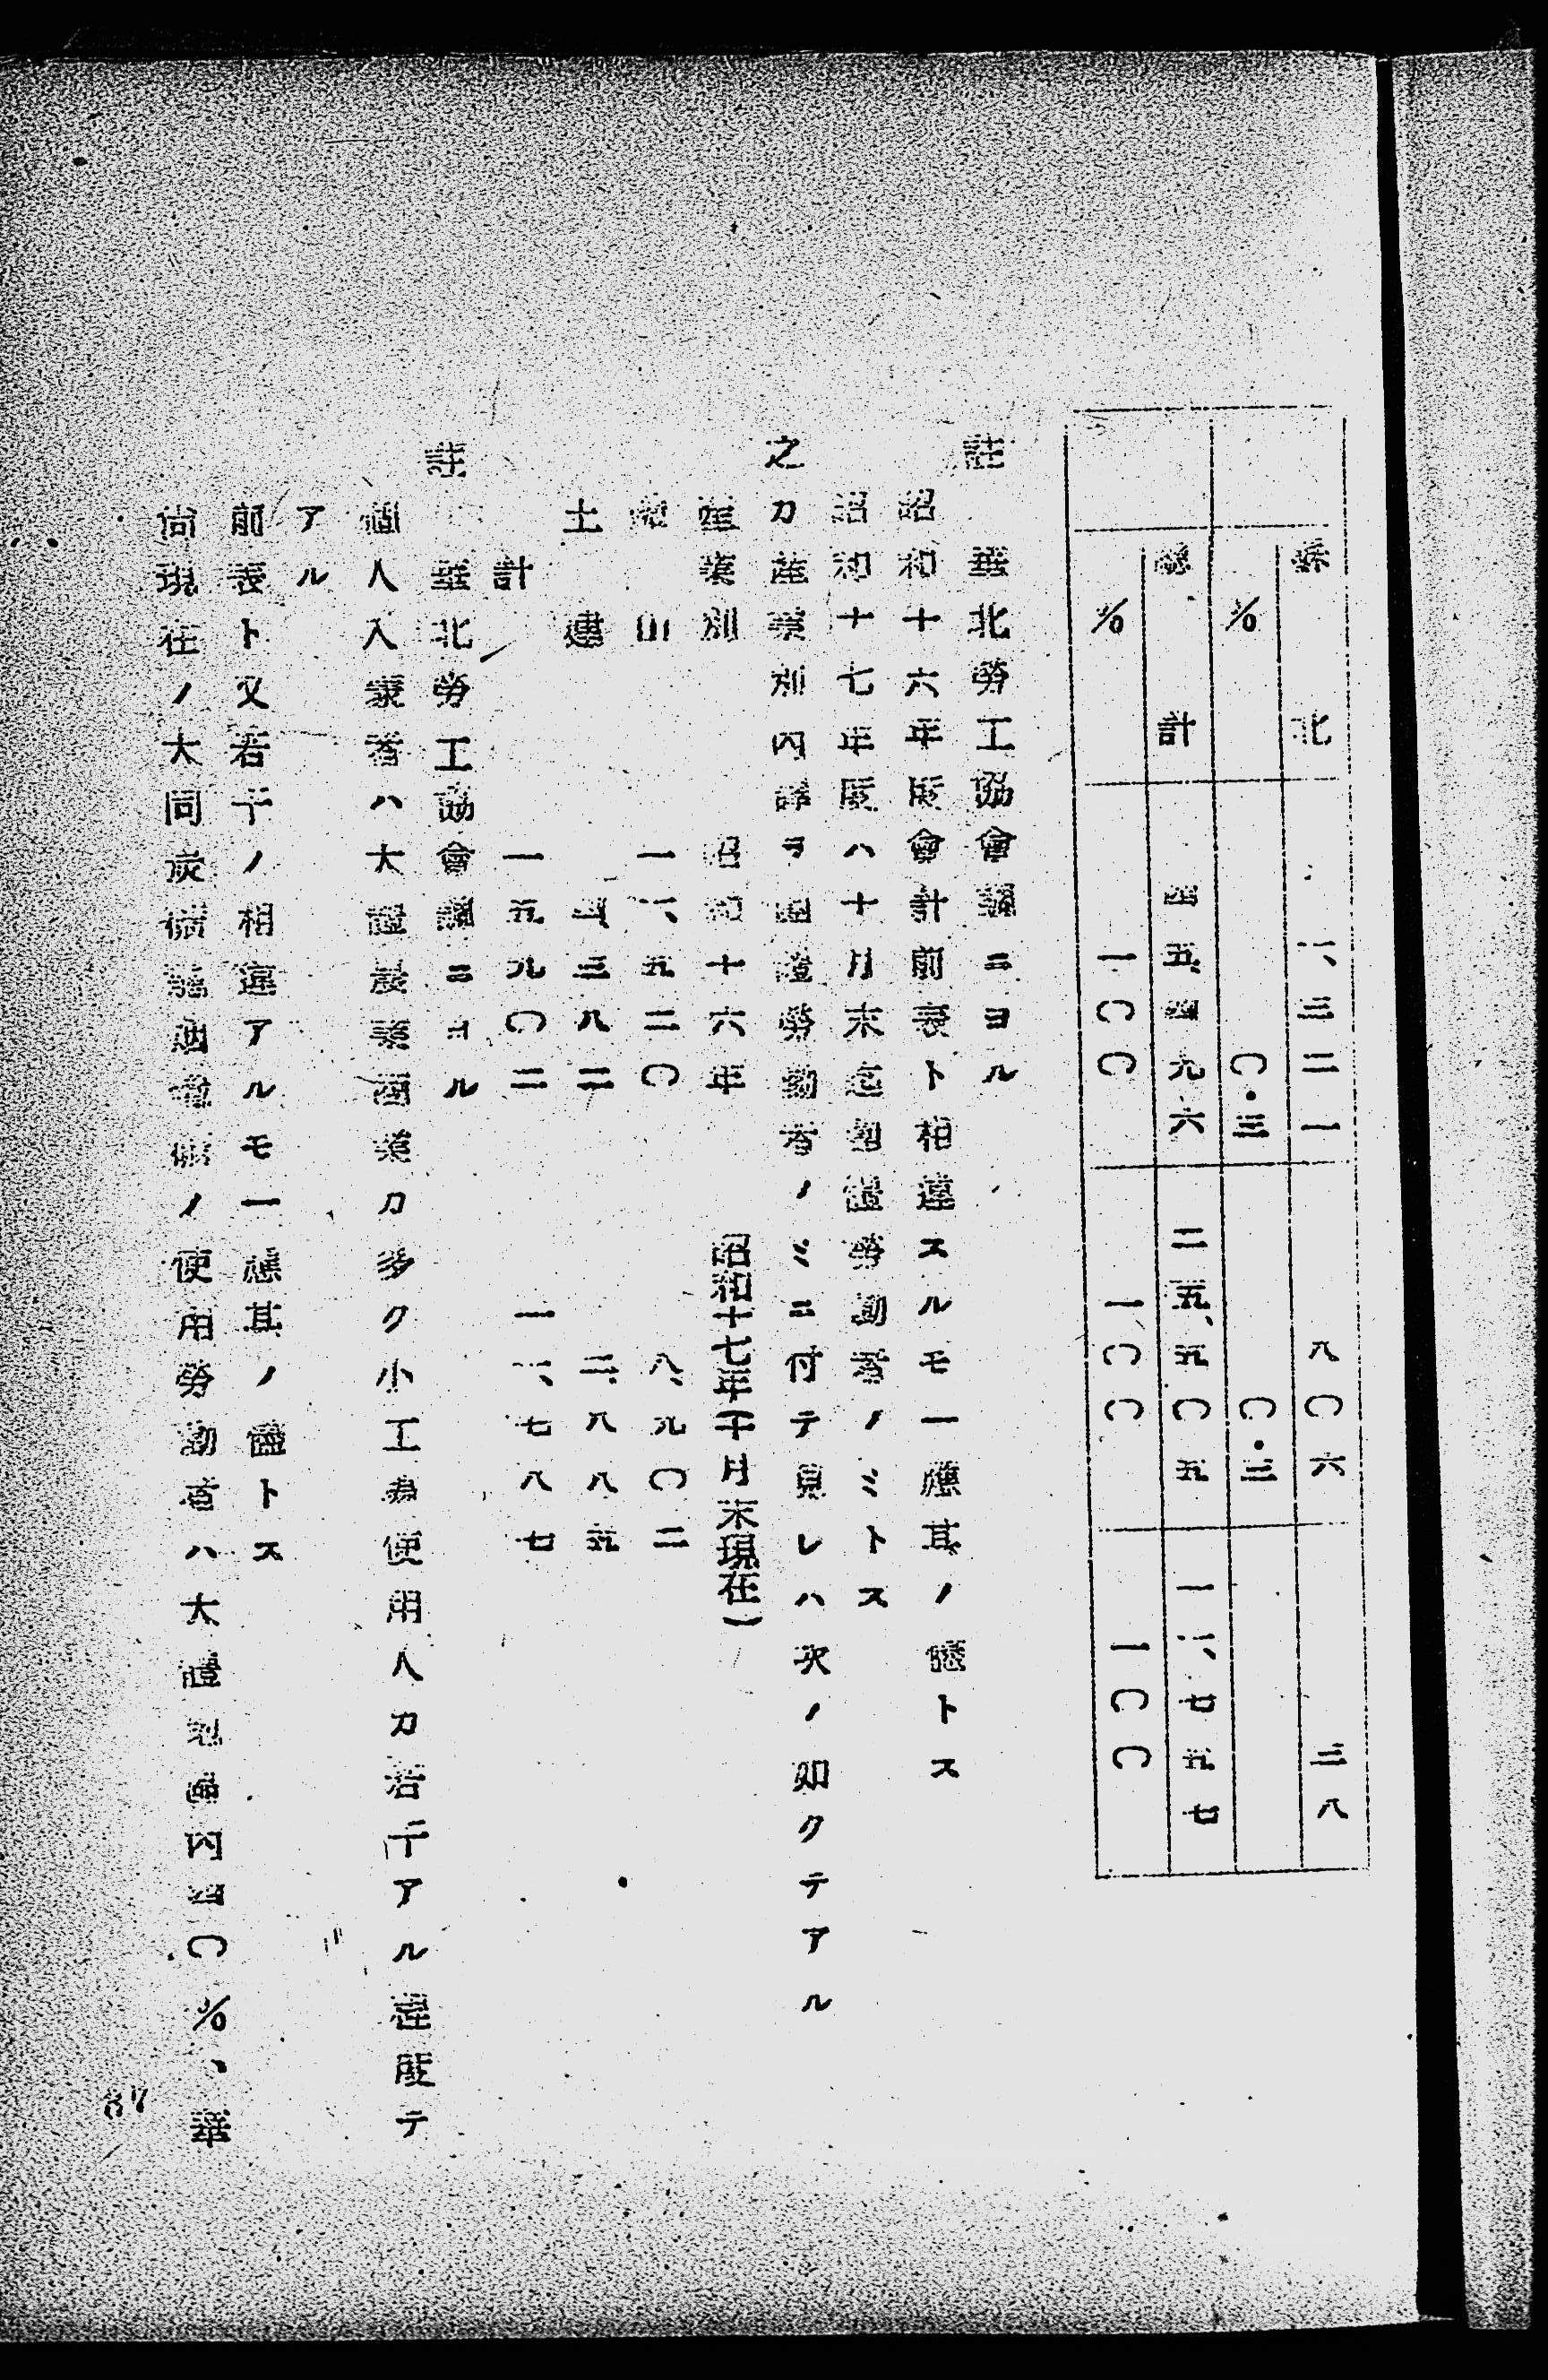 蘇北 一、三二一 八〇六 三八
% 〇・三 〇・三
總計 四五、四九六 二五、五〇五 一六、七五七
% 一〇〇 一〇〇 一〇〇
註 華北勞工協會調ニヨル
昭和十六年度會計前表ト相違スルモ一應其ノ儘トス
昭和十七年度ハ十月末迄 勞働者ノミトス
之カ産業別内譯ヲ 勞働者ノミニ付テ見レハ次ノ如クテアル
産業別 昭和十六年 昭和十七年(十月末現在)
山 一一、五二〇 八、九〇二
土建 四、三八二 二、八八五
計 一五九〇二 一一、七八七
註 華北勞工協會調ニヨル
個人入蒙者ハ大體農業商業カ多ク小工 使用人カ若干アル程度テ
アル
前表ト又若干ノ相違アルモ一應其ノ儘トス
尚現在ノ大同炭礦 ノ使用勞働者ハ大體 内四〇%、華
87